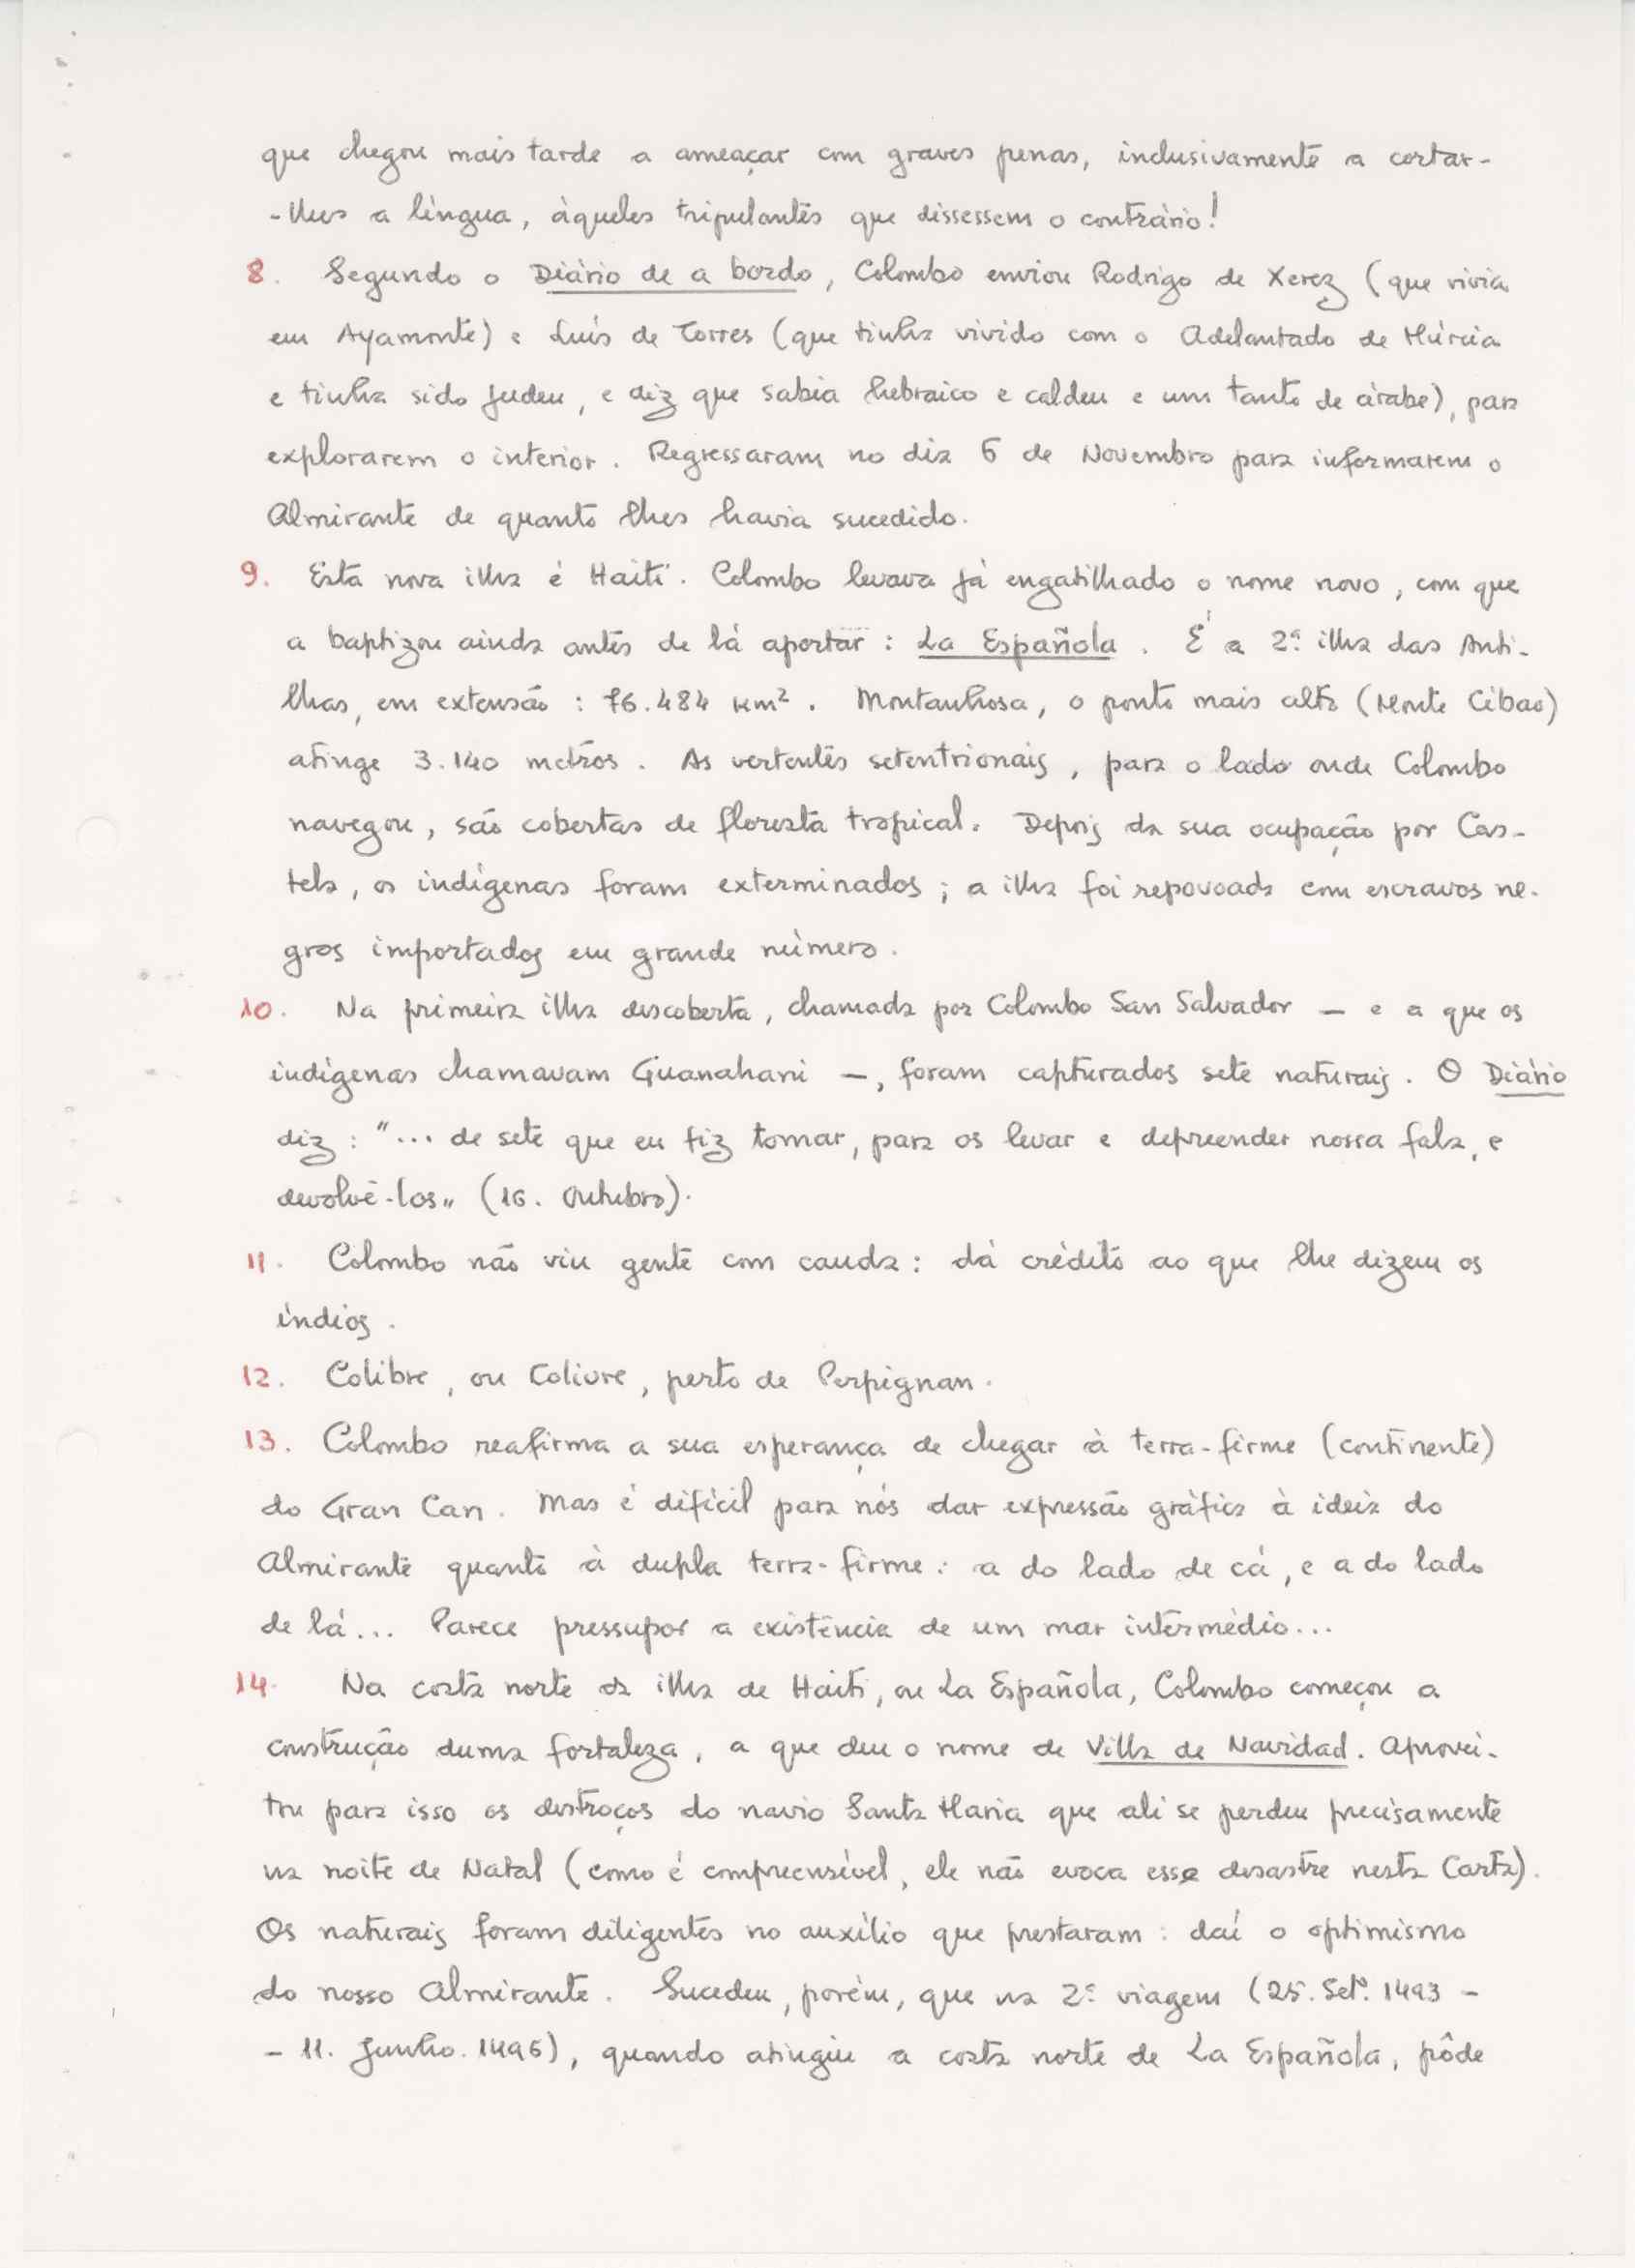 que chegou mais tarde a ameaçar com graves penas, inclusivamente a cortar-
-lhes a língua, àqueles tripulantes que dissessem o contrário!
8. Segundo o Diário de a bordo, Colombo enviou Rodrigo de Xerez (que vivia
em Ayamonte) e Luís de Torres (que tinha vivido com o Adelantado de Múrcia
e tinha sido judeu, e diz que sabia hebraico e caldeu e um tanto de árabe), para
explorarem o interior. Regressaram no dia 6 de Novembro para informarem o
Almirante de quanto lhes havia sucedido.
9. Esta nova ilha é Haiti. Colombo levava já engatilhado o nome novo, com que
a baptizou ainda antes de lá aportar: La Española. É a 2ª ilha das Anti-
lhas, em extensão: 76.484 km². Montanhosa, o ponto mais alto (Monte Cibao)
atinge 3.140 metros. As vertentes setentrionais, para o lado onde Colombo
navegou, são cobertas de floresta tropical. Depois da sua ocupação por Cas-
tela, os indígenas foram exterminados; a ilha foi repovoada com escravos ne-
gros importados em grande número.
10. Na primeira ilha descoberta, chamada por Colombo San Salvador — e a que os
indígenas chamavam Guanahani —, foram capturados sete naturais. O Diário
diz: "... de sete que eu fiz tomar, para os levar e depreender nossa fala, e
devolvê-los" (16. Outubro).
11. Colombo não viu gente com cauda: dá crédito ao que lhe dizem os
índios.
12. Colibre, ou Colivre, perto de Perpignan.
13. Colombo reafirma a sua esperança de chegar à terra-firme (continente)
do Gran Can. Mas é difícil para nós dar expressão gráfica à ideia do
Almirante quanto à dupla terra-firme: a do lado de cá, e a do lado
de lá... Parece pressupor a existência de um mar intermédio...
14. Na costa norte da ilha de Haiti, ou La Española, Colombo começou a
construção duma fortaleza, a que deu o nome de Villa de Navidad. Aprovei-
tou para isso os destroços do navio Santa Maria que ali se perdeu precisamente
na noite de Natal (como é compreensível, ele não evoca esse desastre nesta Carta).
Os naturais foram diligentes no auxílio que prestaram: daí o optimismo
do nosso Almirante. Sucedeu, porém, que na 2ª viagem (25. Setº. 1493 -
- 11. Junho. 1496), quando atingiu a costa norte de La Española, pôde